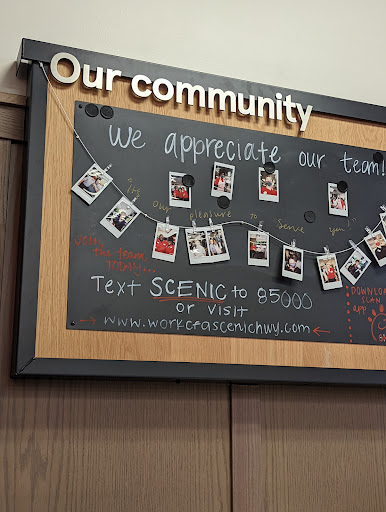 Our community
We appreciate our team!
"It's our pleasure to serve you!"
Join the team TODAY...
Text SCENIC to 85000
or visit
www.workcfascenichwy.com
DOWNLOAD
app